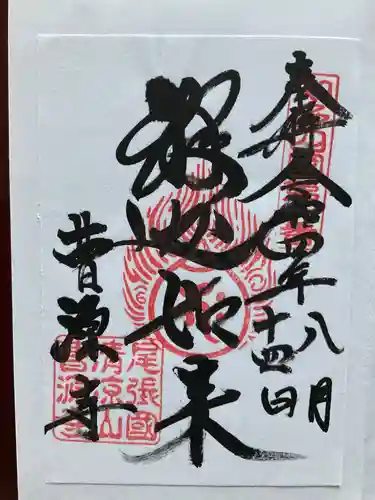 奉拝
令和四年八月
十四日
釈迦如来
普源寺
尾張國
清涼山
普源寺